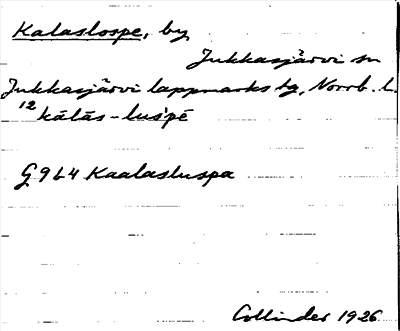 Kalaslospe, by
Jukkasjärvi sn
Jukkasjärvi lappmarks tg, Norrb. l.
12 kālās-luspē
G 964 Kaalasluspa
Collinder 1926